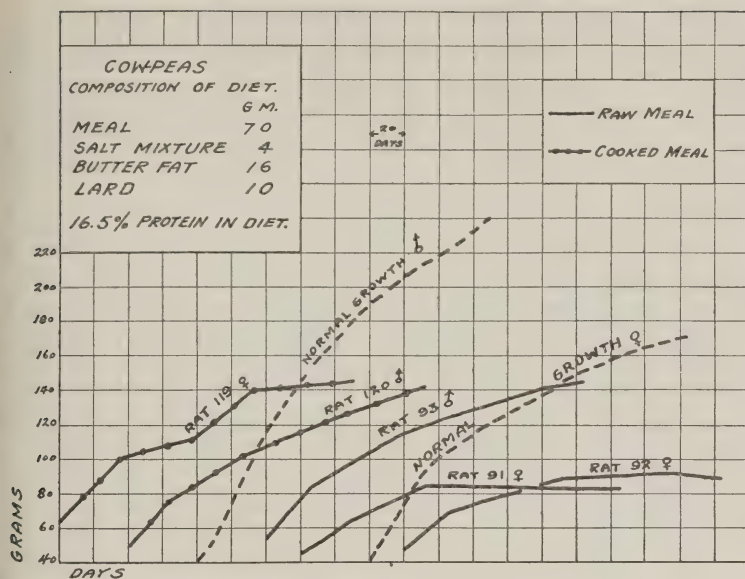 COWPEAS
COMPOSITION OF DIET.
GM.
MEAL 70
SALT MIXTURE 4
BUTTER FAT 16
LARD 10
16.5% PROTEIN IN DIET.
20
DAYS
RAW MEAL
COOKED MEAL
220
200
180
160
140
120
100
80
60
40
GRAMS
DAYS
NORMAL GROWTH ♂
RAT 119 ♀
RAT 120 ♂
RAT 93 ♂
NORMAL GROWTH ♀
RAT 91 ♀
RAT 92 ♀